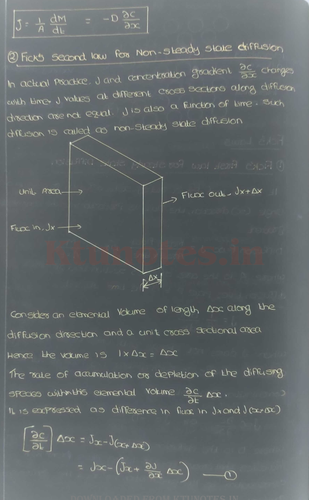 J = 1/A dM/dt = -D ∂c/∂x
② Fick's second law for Non-steady state diffusion
In actual practice, J and concentration gradient ∂c/∂x changes
with time. J values at different cross sections along diffusion
direction are not equal. J is also a function of time. Such
diffusion is called as non-steady state diffusion
Unit area
Flux out - Jx+Δx
Flux in, Jx
Ktunotes.in
Δx
Consider an elemental volume of length Δx along the
diffusion direction and a unit cross sectional area
Hence the volume is 1×Δx = Δx
The rate of accumulation or depletion of the diffusing
species within this elemental volume ∂c/∂t Δx.
It is expressed as difference in flux in Jx and J(x+Δx)
[∂c/∂t] Δx = Jx - J(x+Δx)
= Jx - (Jx + ∂J/∂x Δx) — ①